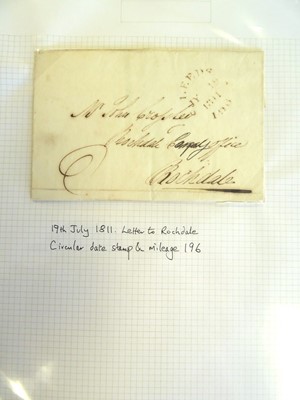 LEEDS
196
Mr John Crossley
Rochdale Canal Office
Rochdale
19th July 1811. Letter to Rochdale
Circular date stamp & mileage 196